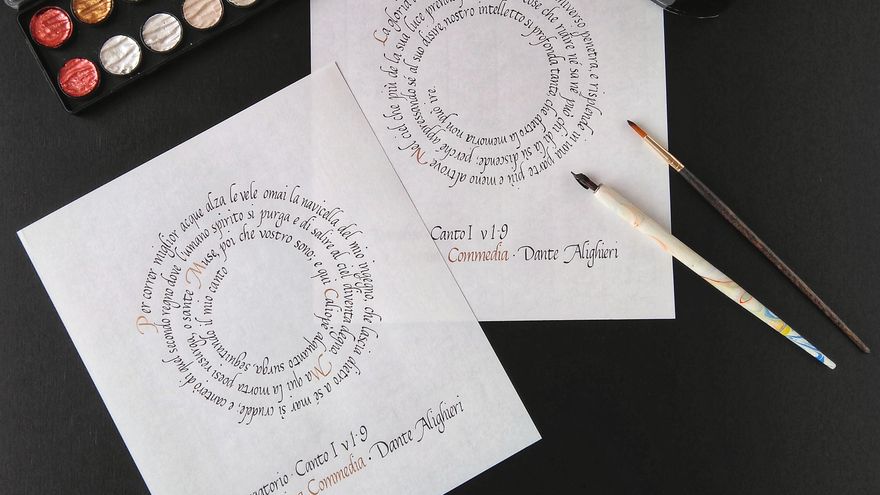 La gloria
universo penetra, e risplende in una parte più e meno altrove. Nel ciel che più de la sua luce prende
cose che ridire né sa né può chi di là sù discende; perché appressando sé al suo disire, nostro intelletto si profonda tanto, che dietro la memoria non può ire.
Canto I v 1·9
Commedia · Dante Alighieri
Per correr miglior acque alza le vele omai la navicella del mio ingegno, che lascia dietro a sé mar sì crudele; e canterò di quel secondo regno dove l'umano spirito si purga e di salire al ciel diventa degno. Ma qui la morta poesì risurga, o sante Muse, poi che vostro sono; e qui Caliopè alquanto surga, seguitando il mio canto
gatorio · Canto I v 1·9
Commedia · Dante Alighieri